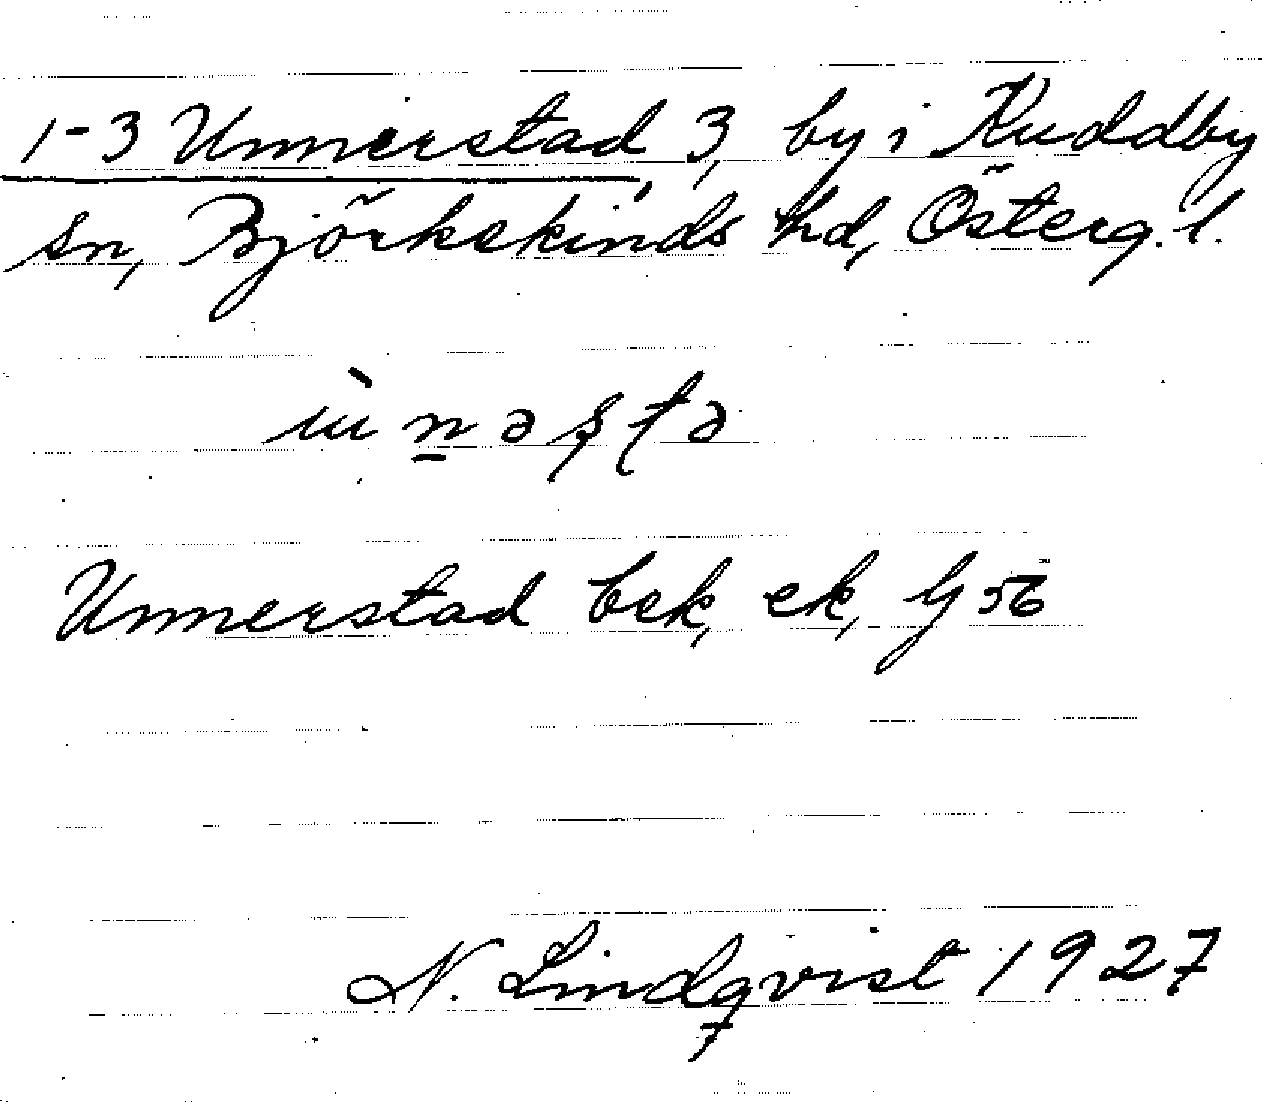 1-3 Unnerstad, 3, by i Kuddby
sn, Björkekinds hd, Österg. l.
Unnerstad bek, ek, G 56
N. Lindqvist 1927